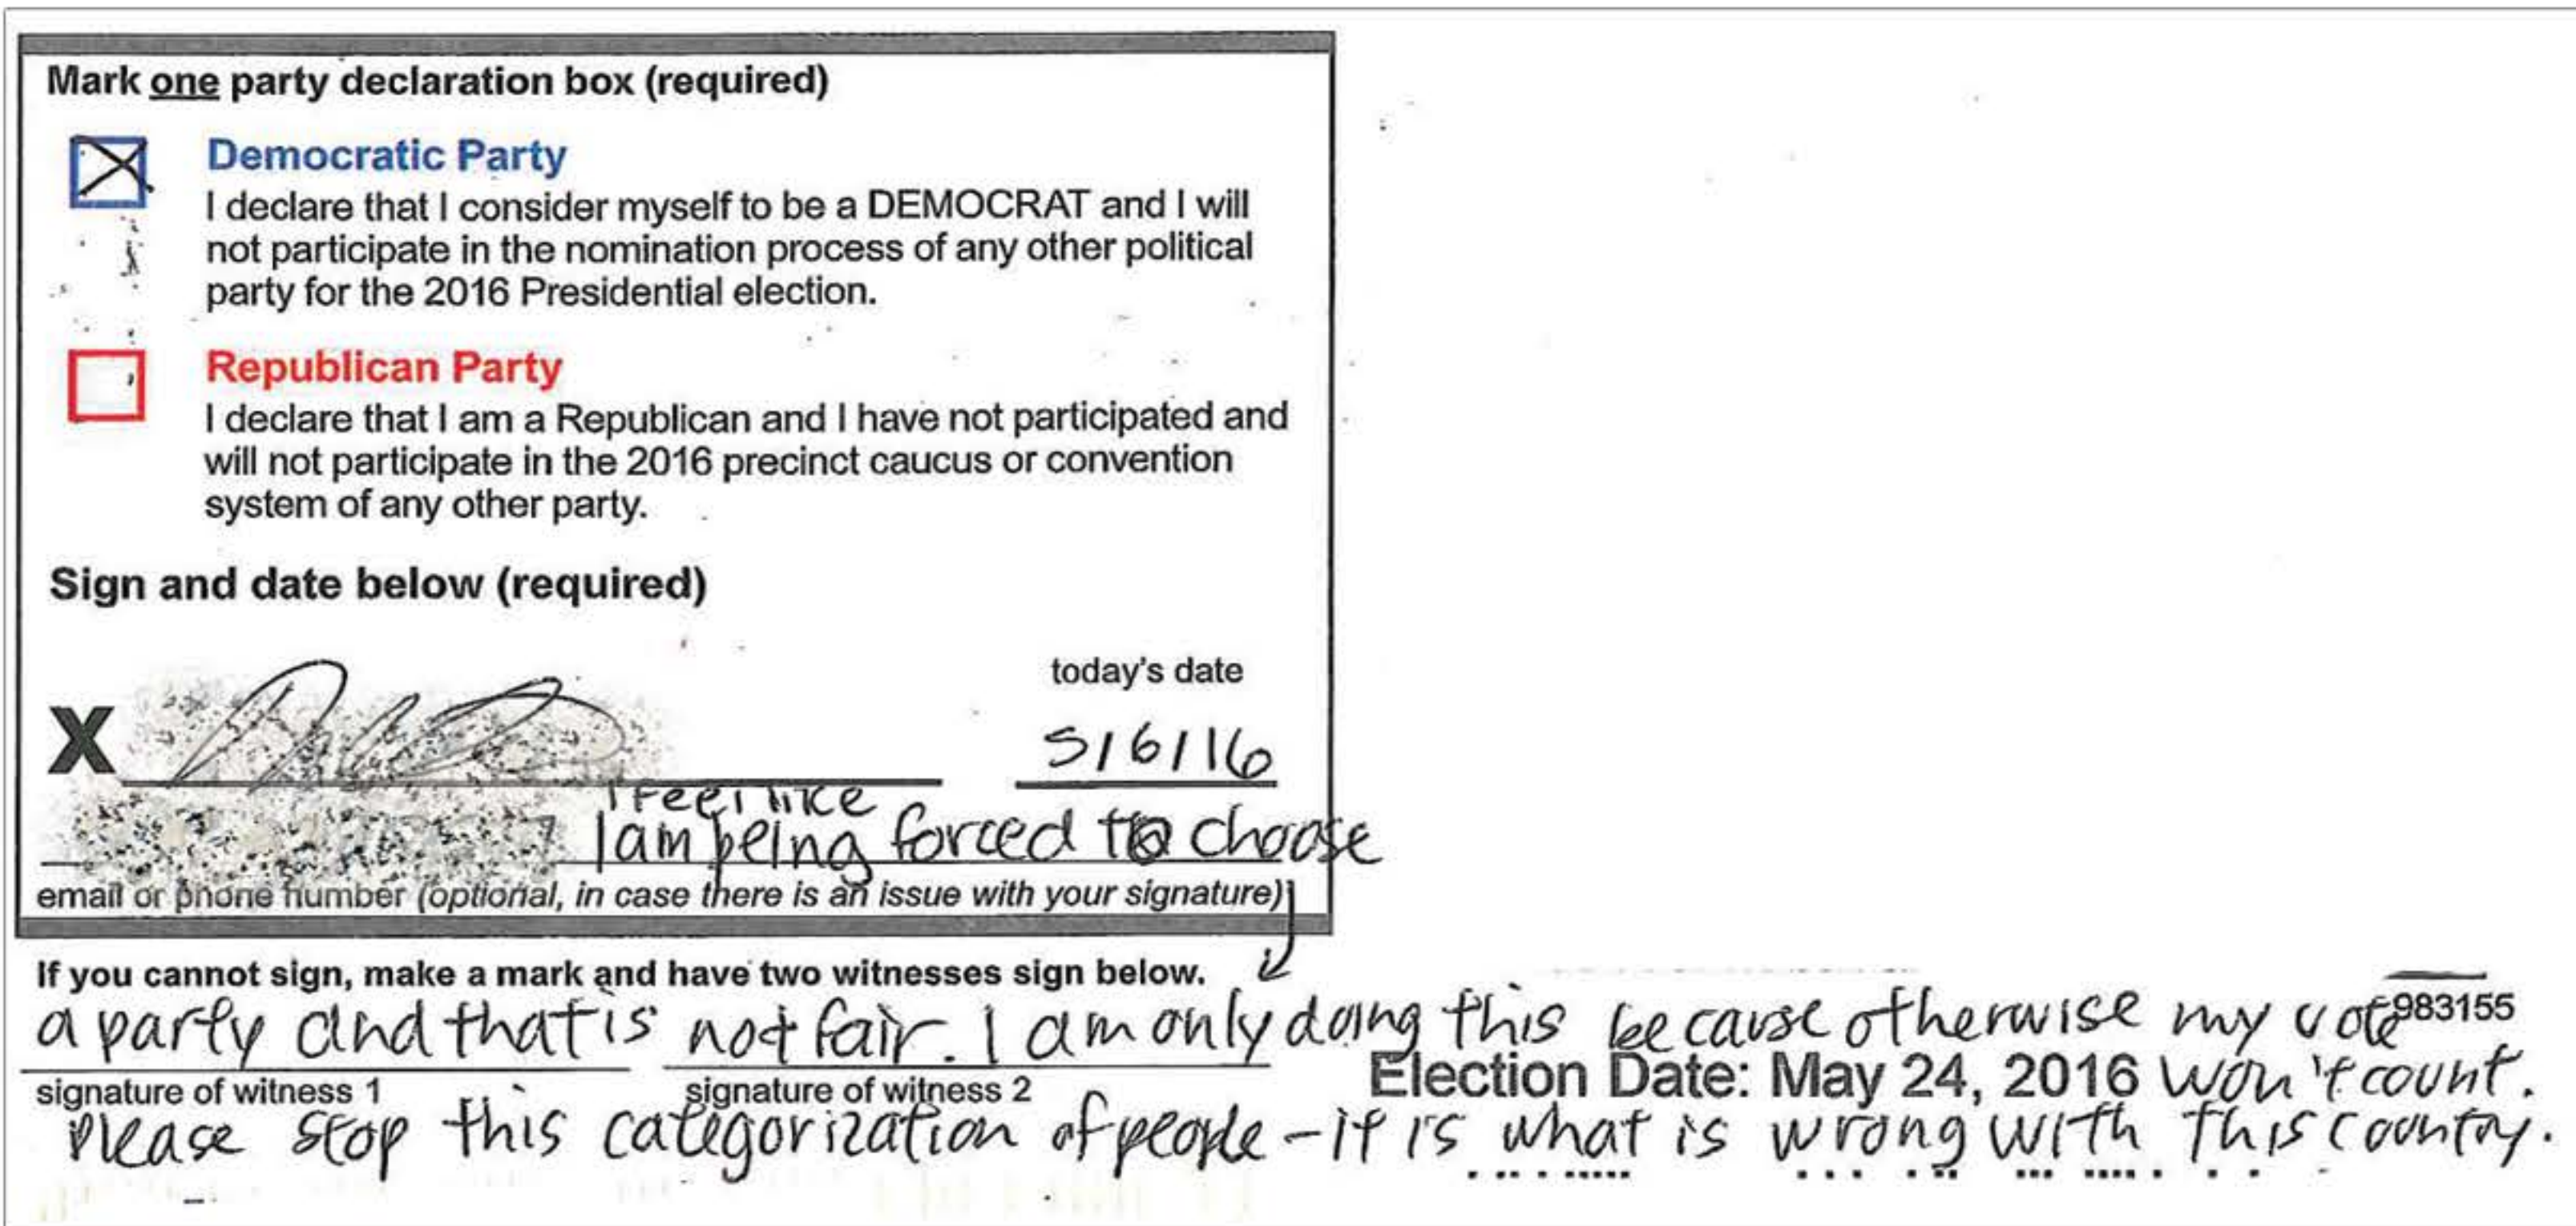 Mark one party declaration box (required)
Democratic Party
I declare that I consider myself to be a DEMOCRAT and I will
not participate in the nomination process of any other political
party for the 2016 Presidential election.
Republican Party
I declare that I am a Republican and I have not participated and
will not participate in the 2016 precinct caucus or convention
system of any other party.
Sign and date below (required)
today's date
X
5/6/16
I feel like
I am being forced to choose
email or phone number (optional, in case there is an issue with your signature)
If you cannot sign, make a mark and have two witnesses sign below.
a party and that is not fair. I am only doing this because otherwise my vote
983155
signature of witness 1 signature of witness 2 Election Date: May 24, 2016 won't count.
Please stop this categorization of people - it is what is wrong with this country.